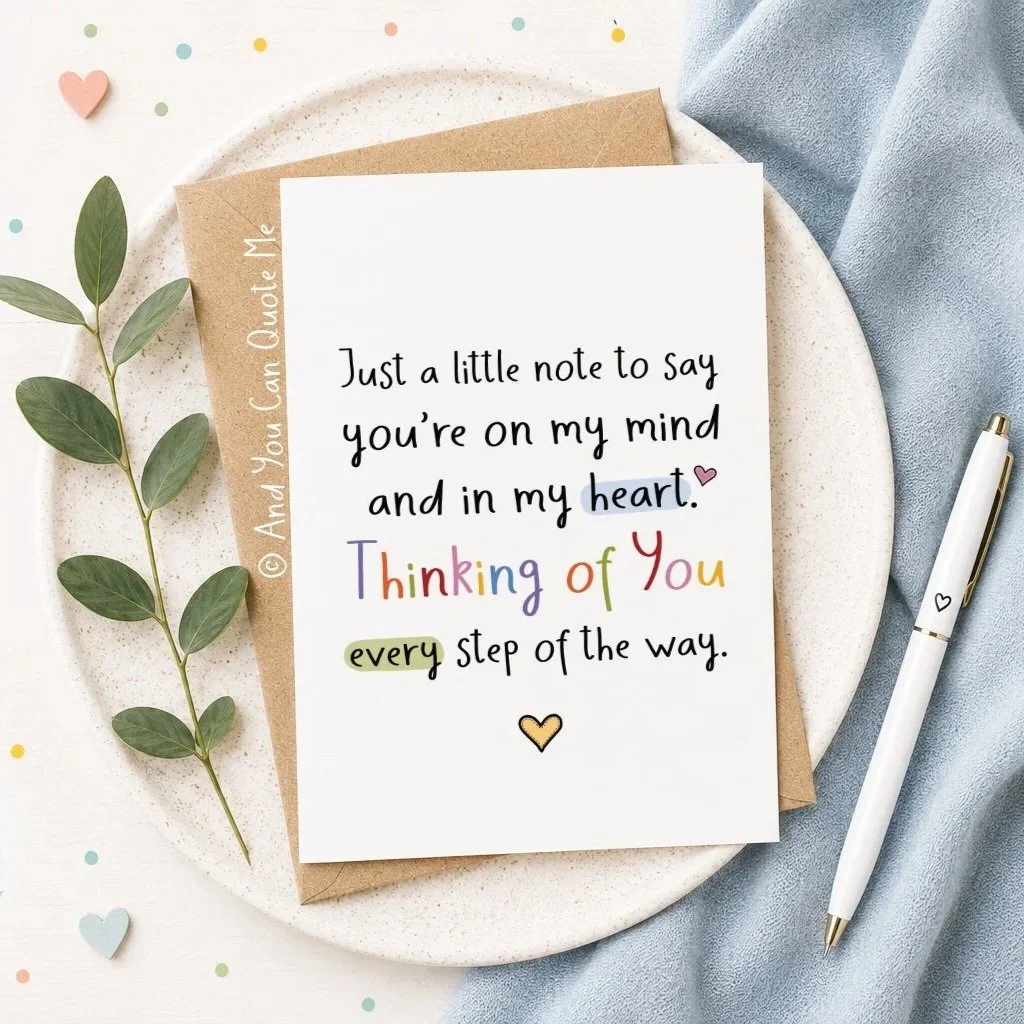 Just a little note to say
you're on my mind
and in my heart.
Thinking of You
every step of the way.
© And You Can Quote Me